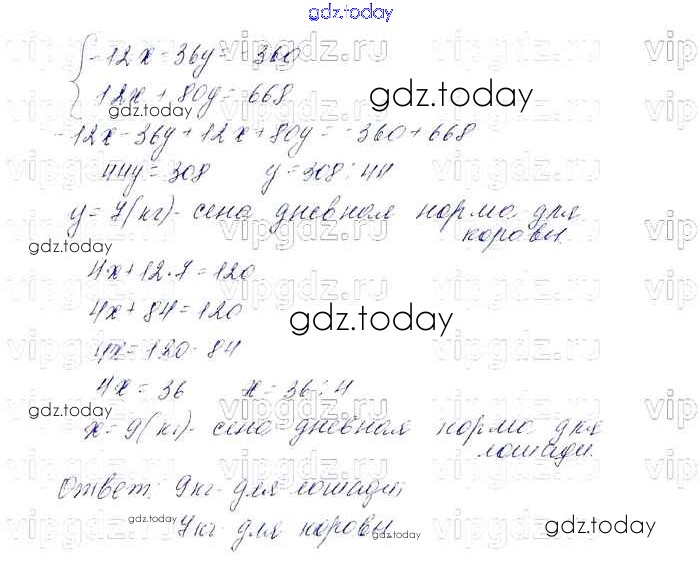 gdz.today
-12x - 36y = -360
12x + 80y = 668
gdz.today
gdz.today
-12x - 36y + 12x + 80y = -360 + 668
44y = 308 y = 308 : 44
y = 7 (кг) - сена дневная норма для
коровы.
gdz.today
4x + 12·7 = 120
4x + 84 = 120
gdz.today
4x = 120 - 84
4x = 36 x = 36 : 4
gdz.today
x = 9 (кг) - сена дневная норма для
лошади.
Ответ: 9 кг - для лошади;
7 кг - для коровы.
gdz.today
gdz.today
gdz.today
vipgdz.ru